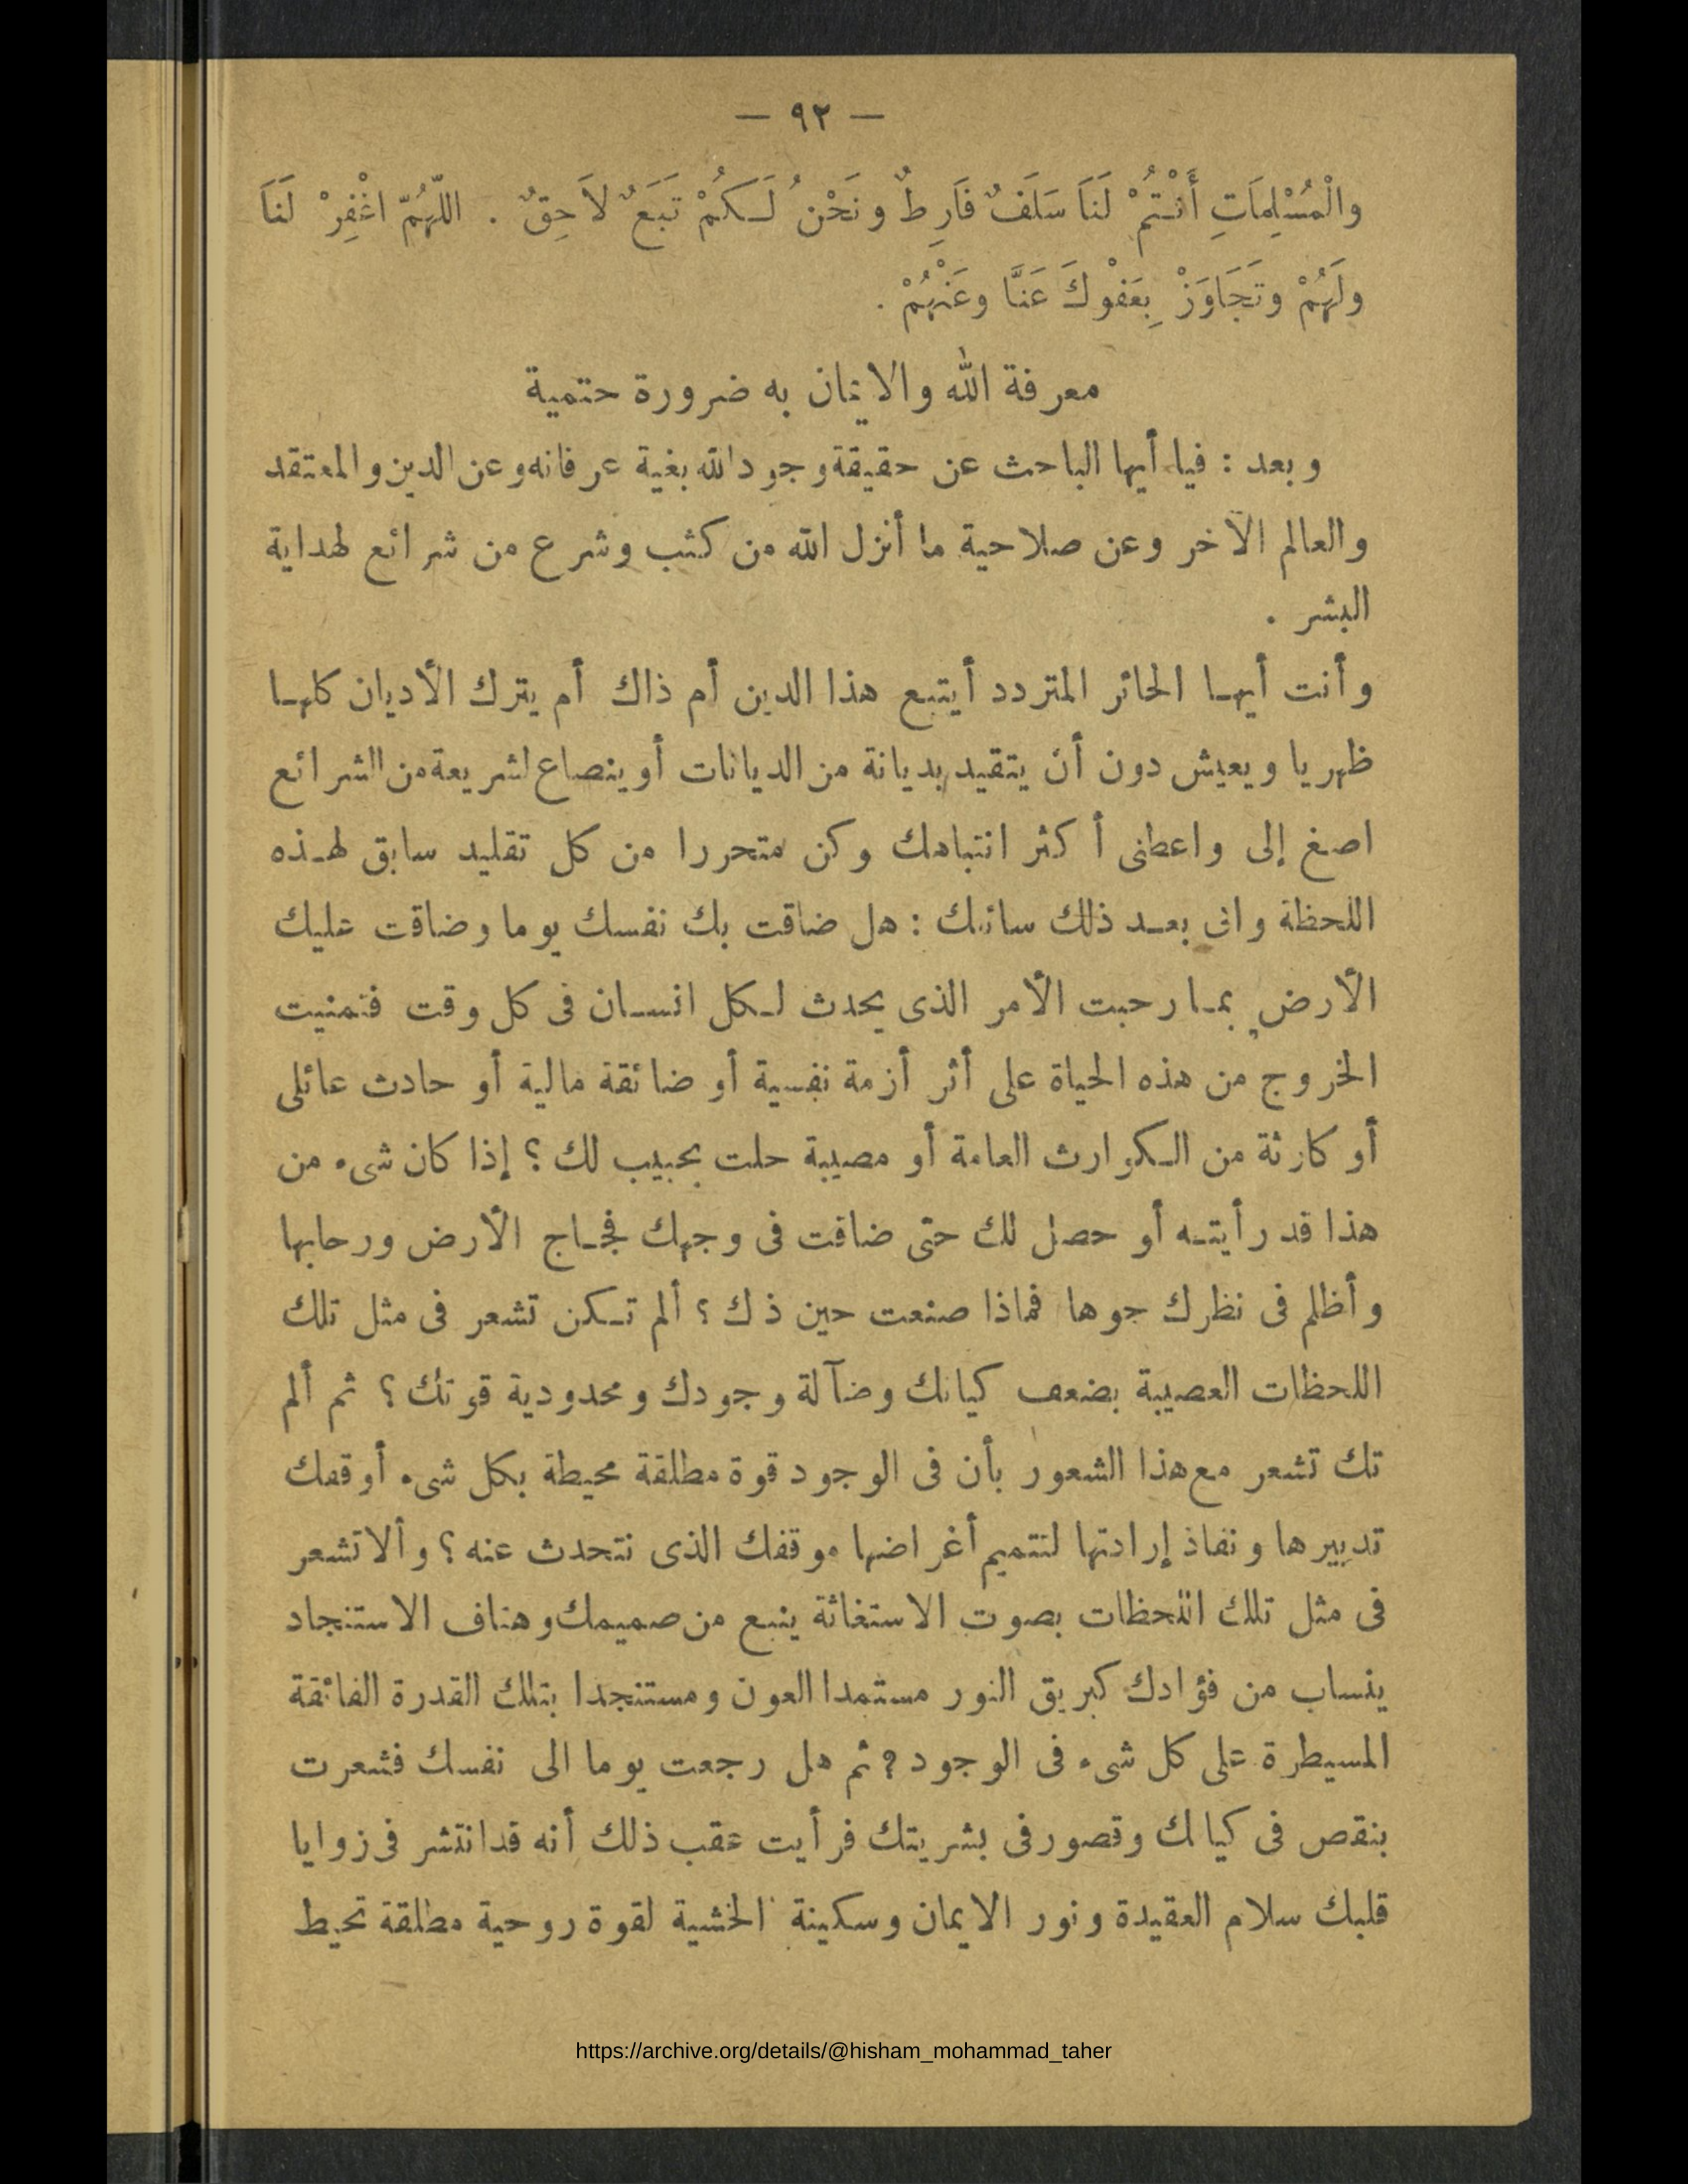 — ٩٢ —
والْمُسْلِمَاتِ أَنْتُمْ لَنَا سَلَفٌ فَارِطٌ ونَحْنُ لَكُمْ تَبَعٌ لاَحِقٌ . اللّهُمّ اغْفِرْ لَنَا
ولَهُمْ وتَجَاوَزْ بِعَفْوكَ عَنَّا وعَنْهُمْ .
معرفة الله والايمان به ضرورة حتمية
وبعد : فيا أيها الباحث عن حقيقة وجود الله بغية عرفانه وعن الدين والمعتقد
والعالم الآخر وعن صلاحية ما أنزل الله من كتب وشرع من شرائع لهداية
البشر .
وأنت أيها الحائر المتردد أيتبع هذا الدين أم ذاك أم يترك الأديان كلها
ظهريا ويعيش دون أن يتقيد بديانة من الديانات أو ينصاع لشريعة من الشرائع
اصغ إلى واعطنى أكثر انتباهك وكن متحررا من كل تقليد سابق لهذه
اللحظة وانى بعد ذلك سائلك : هل ضاقت بك نفسك يوما وضاقت عليك
الأرض بما رحبت الأمر الذى يحدث لكل انسان فى كل وقت فتمنيت
الخروج من هذه الحياة على أثر أزمة نفسية أو ضائقة مالية أو حادث عائلى
أو كارثة من الكوارث العامة أو مصيبة حلت بحبيب لك ؟ إذا كان شىء من
هذا قد رأيته أو حصل لك حتى ضاقت فى وجهك فجاج الأرض ورحابها
وأظلم فى نظرك جوها فماذا صنعت حين ذك ؟ ألم تكن تشعر فى مثل تلك
اللحظات العصيبة بضعف كيانك وضآلة وجودك ومحدودية قوتك ؟ ثم ألم
تك تشعر مع هذا الشعور بأن فى الوجود قوة مطلقة محيطة بكل شىء أوقفك
تدبيرها ونفاذ إرادتها لتتميم أغراضها موقفك الذى نتحدث عنه ؟ وألا تشعر
فى مثل تلك اللحظات بصوت الاستغاثة ينبع من صميمك وهتاف الاستنجاد
ينساب من فؤادك كبريق النور مستمدا العون ومستنجدا بتلك القدرة الفائقة
المسيطرة على كل شىء فى الوجود ? ثم هل رجعت يوما الى نفسك فشعرت
بنقص فى كيانك وقصور فى بشريتك فرأيت عقب ذلك أنه قد انتشر فى زوايا
قلبك سلام العقيدة ونور الايمان وسكينة الخشية لقوة روحية مطلقة تحيط
https://archive.org/details/@hisham_mohammad_taher